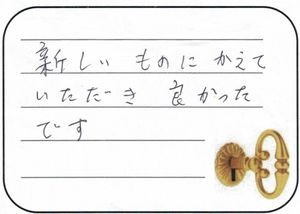 新しい ものに かえて
いただき 良かった
です